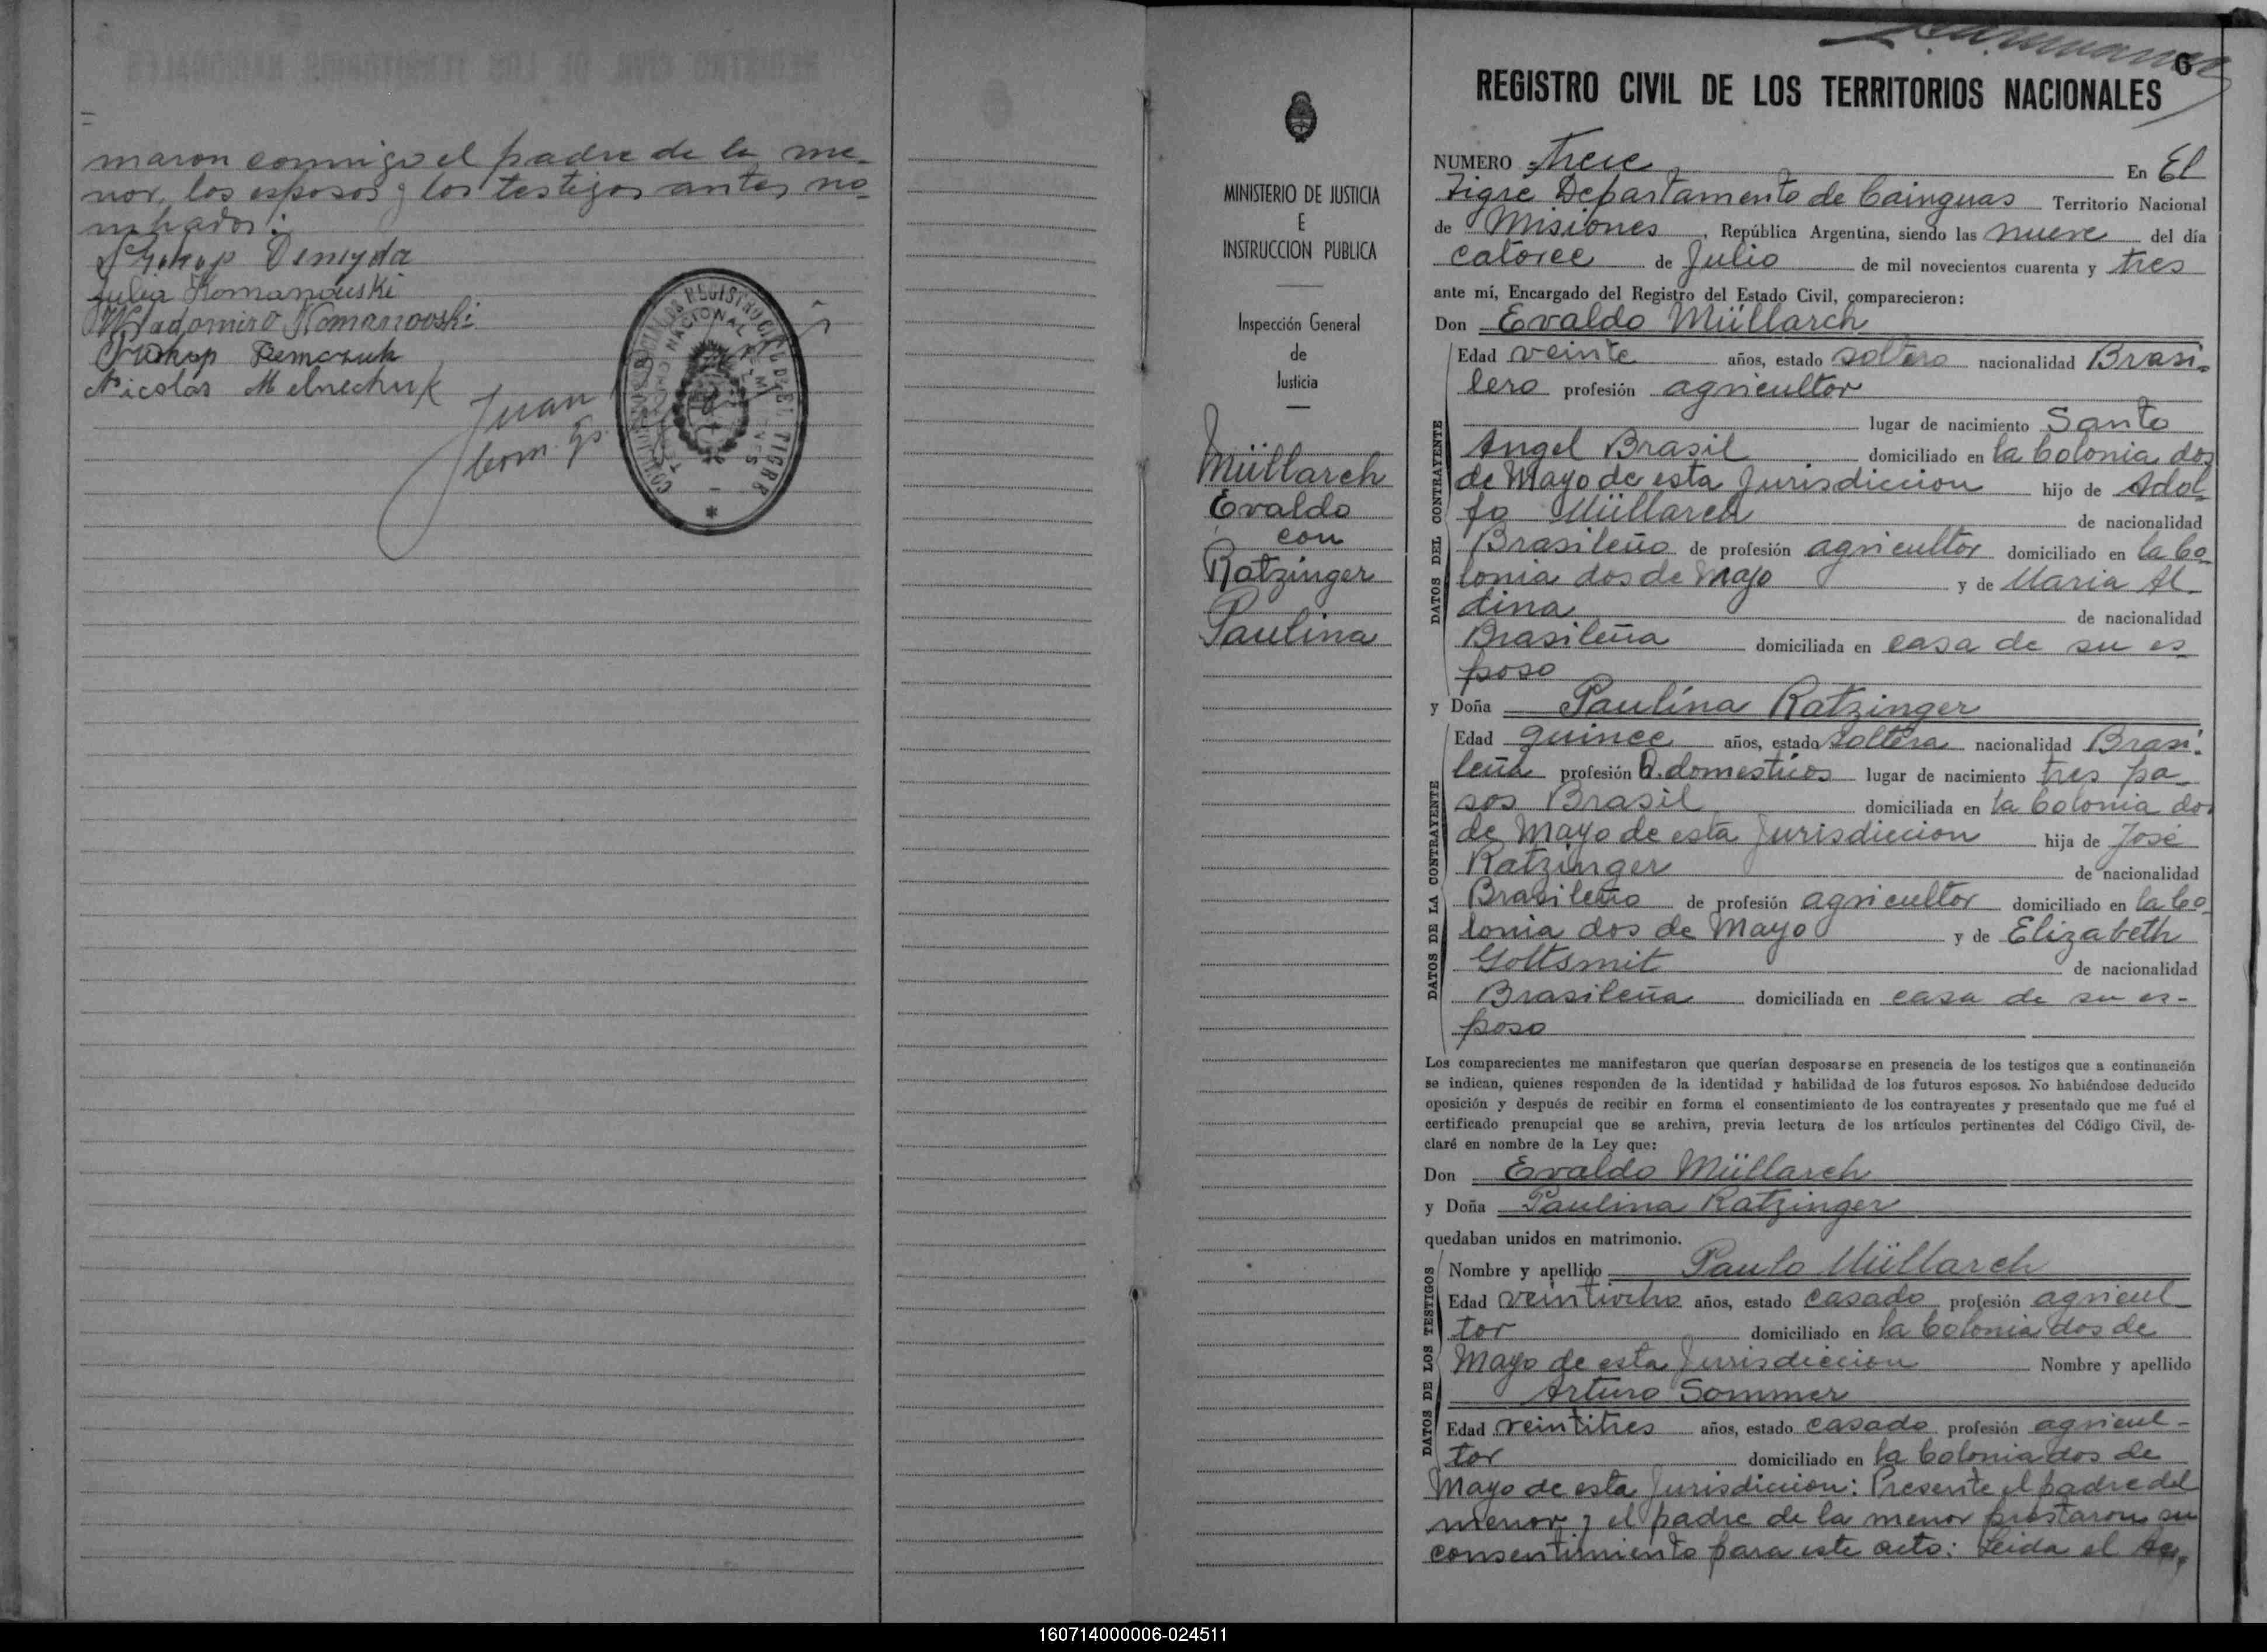 maron conmigo el padre de la me-
nor, los esposos y los testigos antes no-
mbrados:
Prokop Demyda
Julia Romanouski
Wladomiro Romanowski
Prokop Demczuk
Nicolás Melnechuk
Juan
Com.
REGISTRO CIVIL DE EL TIGRE
MINISTERIO DE JUSTICIA
E
INSTRUCCION PUBLICA
Inspección General
de
Justicia
Müllarch
Evaldo
con
Ratzinger
Paulina
6
REGISTRO CIVIL DE LOS TERRITORIOS NACIONALES
NUMERO Trece En El
Tigre Departamento de Cainguas Territorio Nacional
de Misiones, República Argentina, siendo las nueve del día
catorce de Julio de mil novecientos cuarenta y tres
ante mí, Encargado del Registro del Estado Civil, comparecieron:
Don Evaldo Müllarch
Edad veinte años, estado soltero nacionalidad Brasi-
lero profesión agricultor
lugar de nacimiento Santo
Angel Brasil domiciliado en la Colonia dos
de Mayo de esta Jurisdiccion hijo de Adol-
fo Müllarch de nacionalidad
Brasileño de profesión agricultor domiciliado en la Co-
lonia dos de Mayo y de Maria Al-
dina de nacionalidad
Brasileña domiciliada en casa de su es-
poso
y Doña Paulina Ratzinger
Edad quince años, estado soltera nacionalidad Brasi-
leña profesión Q. domesticos lugar de nacimiento tres pa-
sos Brasil domiciliada en la Colonia dos
de Mayo de esta Jurisdiccion hija de José
Ratzinger de nacionalidad
Brasileño de profesión agricultor domiciliado en la Co-
lonia dos de Mayo y de Elizabeth
Gottsmit de nacionalidad
Brasileña domiciliada en casa de su es-
poso
DATOS DEL CONTRAYENTE
DATOS DE LA CONTRAYENTE
Los comparecientes me manifestaron que querían desposarse en presencia de los testigos que a continuación
se indican, quienes responden de la identidad y habilidad de los futuros esposos. No habiéndose deducido
oposición y después de recibir en forma el consentimiento de los contrayentes y presentado que me fué el
certificado prenupcial que se archiva, previa lectura de los artículos pertinentes del Código Civil, de-
claré en nombre de la Ley que:
Don Evaldo Müllarch
y Doña Paulina Ratzinger
quedaban unidos en matrimonio.
Nombre y apellido Paulo Müllarch
Edad veintiocho años, estado casado profesión agricul-
tor domiciliado en la Colonia dos de
Mayo de esta Jurisdiccion Nombre y apellido
Arturo Sommer
Edad veintitres años, estado casado profesión agricul-
tor domiciliado en la Colonia dos de
DATOS DE LOS TESTIGOS
Mayo de esta Jurisdiccion: Presente el padre del
menor y el padre de la menor prestaron su
consentimiento para este acto: Leida el Ac-
160714000006-024511